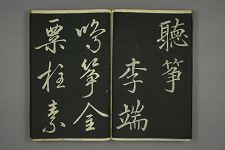 聽箏
李端
鳴箏金
粟柱素